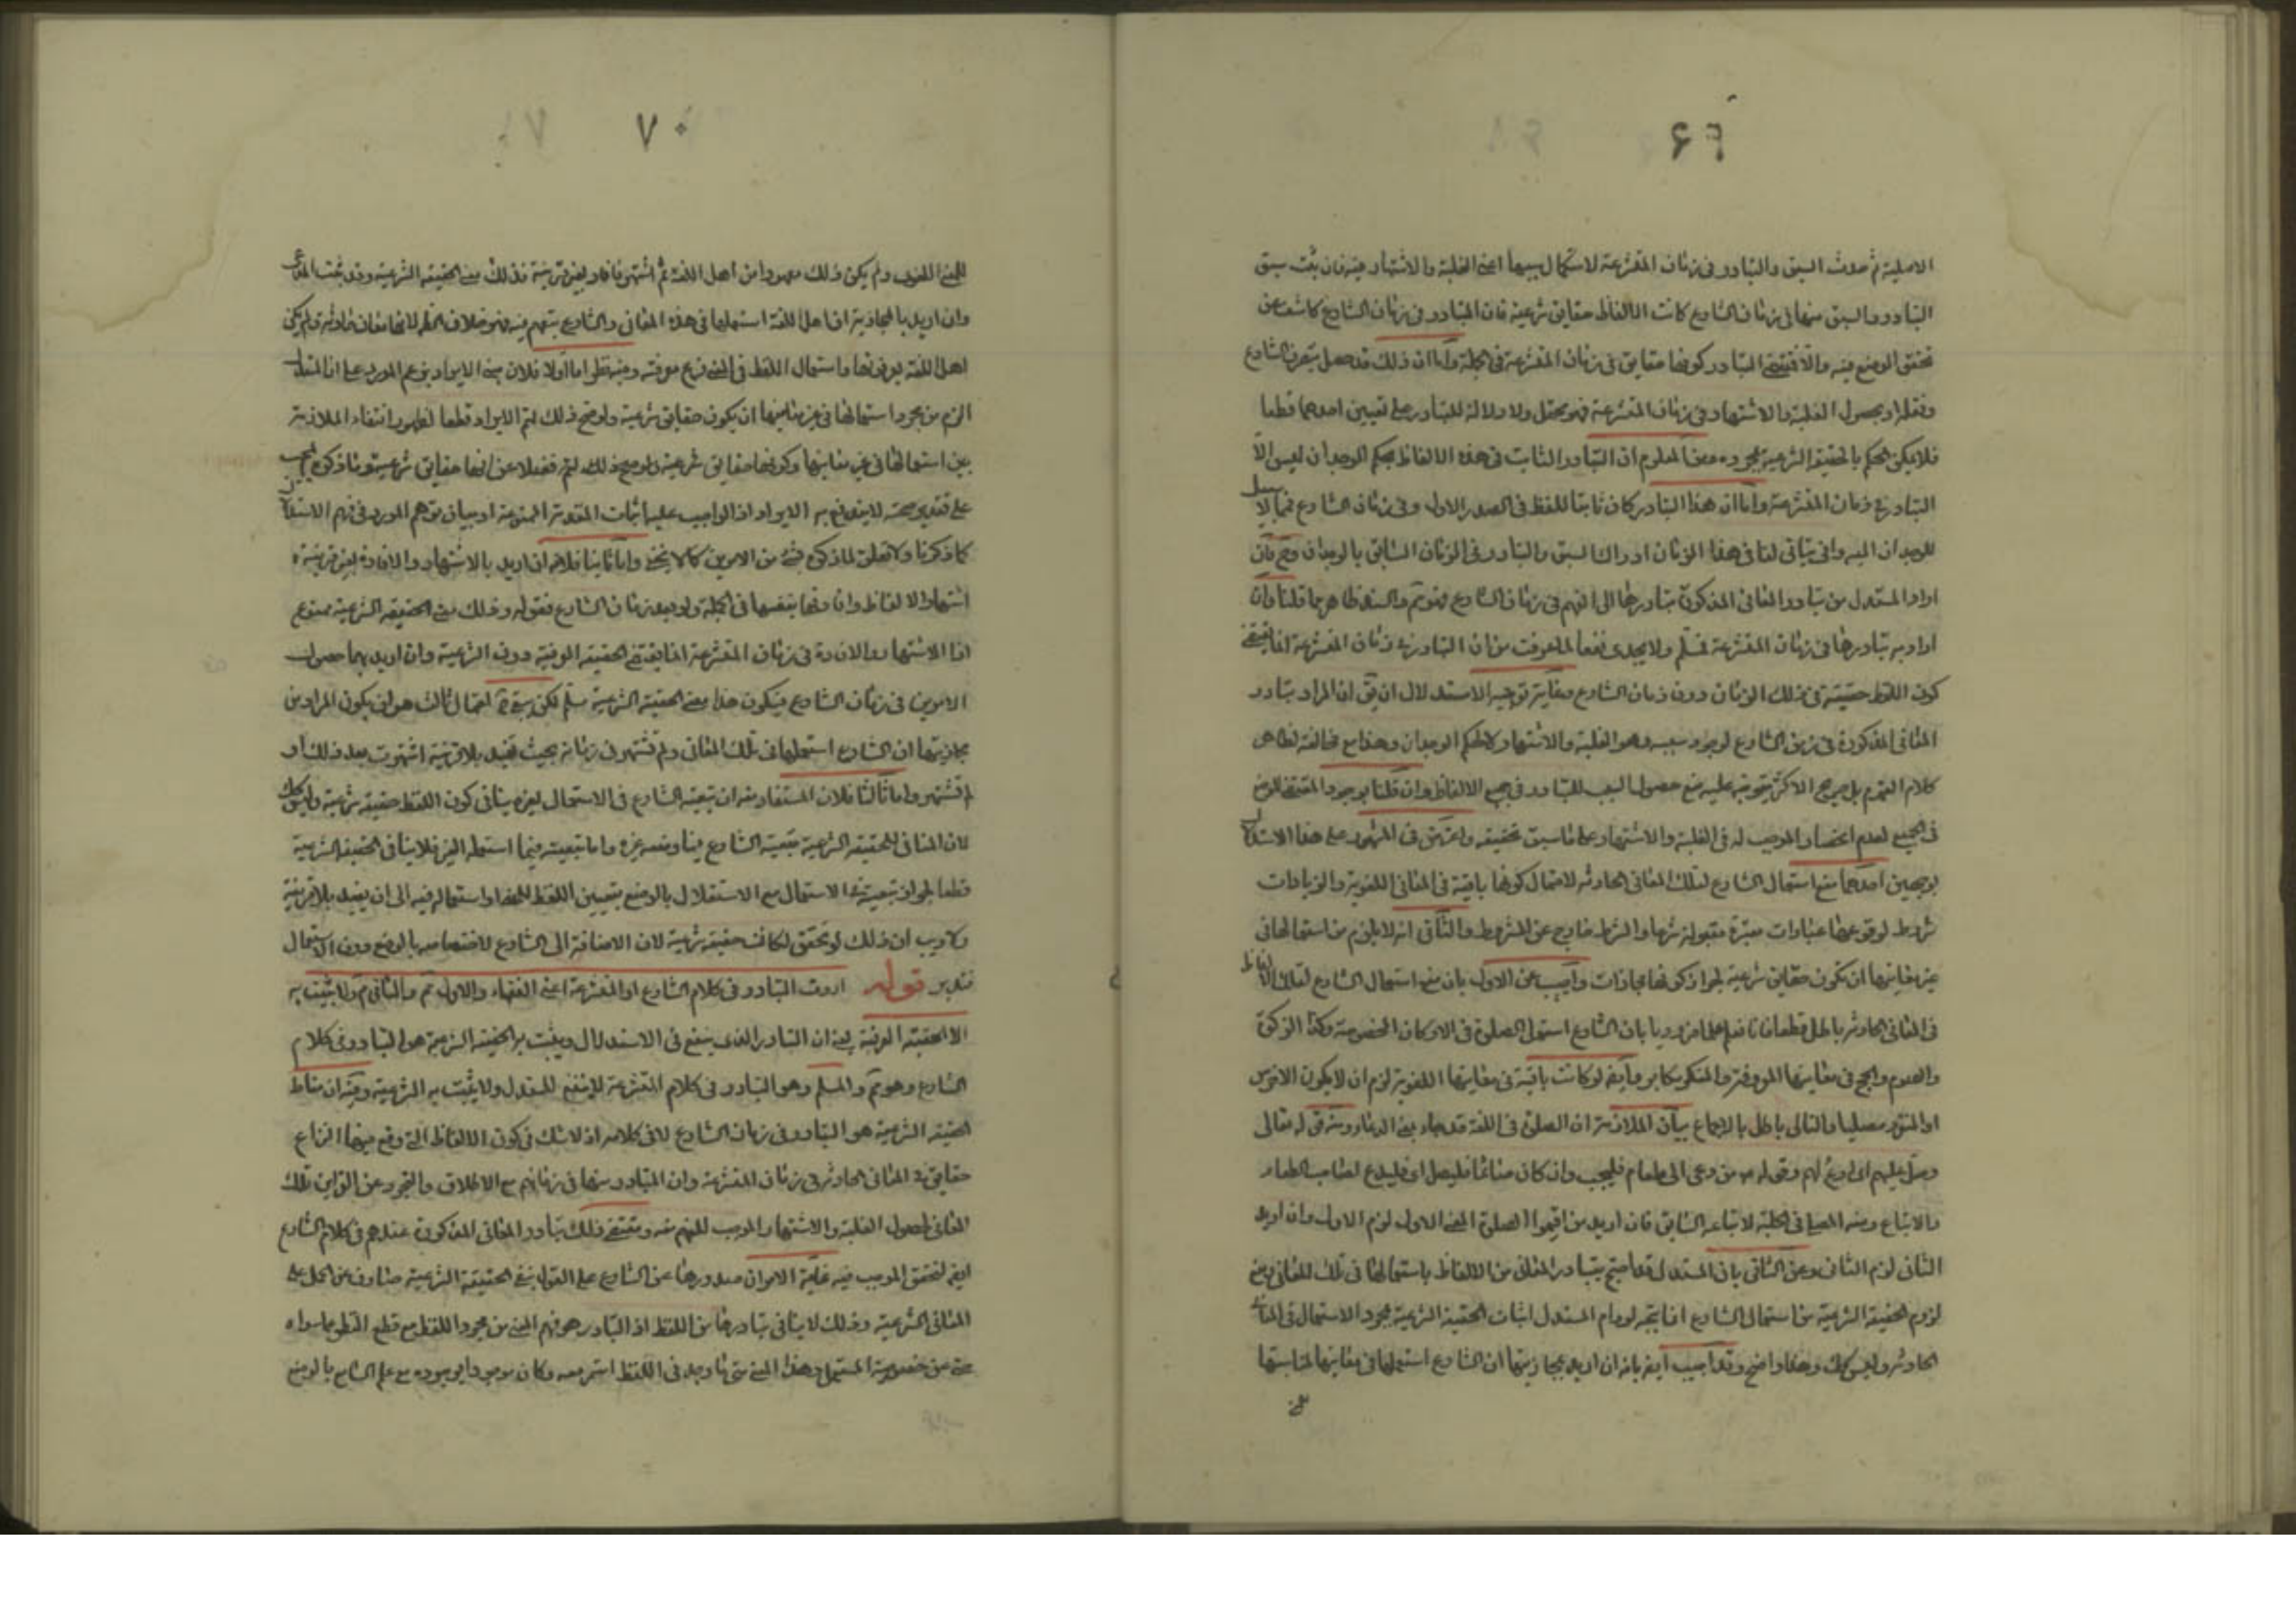 ۶۹
الاصلية ثم حدث السبق والتبادر فى زمان المتشرعة لاستكمال سببها اعنى الغلبة والاشتهار فيه فان ثبت سبق
التبادر والسبق منها فى زمان الشارع كانت الالفاظ حقايق شرعية فان التبادر فى زمان الشارع كاشف عن
تحقق الوضع فيه والا فيقتضى التبادر كونها حقايق فى زمان المتشرعة فى الجملة واما ان ذلك قد حصل بتصرف الشارع
ونقله او بحصول الغلبة والاشتهار فى زمان المتشرعة فهو محتمل ولا دلالة للتبادر على تعيين احدهما قطعا
فلا يمكن الحكم بالحقيقة الشرعية بمجرده ومن المعلوم ان التبادر الثابت فى هذه الالفاظ بحكم الوجدان ليس الا
التبادر فى زمان المتشرعة واما ان هذا التبادر كان ثابتا للفظ فى الصدر الاول وفى زمان الشارع فمما لا سبيل
للوجدان اليه وانى يتاتى لنا فى هذا الزمان ادراك السبق والتبادر فى الزمان السابق بالوجدان وح فان
اراد المستدل من تبادر المعانى المذكورة تبادرها الى الفهم فى زمان الشارع فهو مم والسند ظاهر مما قلنا وان
اراد به تبادرها فى زمان المتشرعة فمسلم ولا يجدى نفعا لما عرفت من ان التبادر فى زمان المتشرعة انما يقتضى
كون اللفظ حقيقة فى ذلك الزمان دون زمان الشارع وغاية توجيه الاستدلال ان يق ان المراد تبادر
المعانى المذكورة فى زمن الشارع لوجود سببه وهو الغلبة والاشتهار لا لحكم الوجدان وهذا مع مخالفته لظاهر
كلام القوم بل صريح الاكثر يتوجه عليه منع حصول السبب للتبادر فى جميع الالفاظ وان قلنا بوجود المقتضى للوضع
فى الجميع لعدم انحصار الموجب له فى الغلبة والاشتهار على ما سبق تحقيقه واعترض فى المشهور على هذا الاستدلال
بوجهين احدهما منع استعمال الشارع لتلك المعانى الحادثه لاحتمال كونها باقية فى المعانى اللغوية والزيادات
شروط لوقوعها عبادات معتبرة مقبولة شرعا والشرط خارج عن المشروط والثانى انه لا يلزم من استعمالها فى
غير معانيها ان تكون حقايق شرعية لجواز كونها مجازات واجيب عن الاول بان منع استعمال الشارع لتلك الالفاظ
فى المعانى الحادثه باطل قطعا فانا نعلم علما ضروريا بان الشارع استعمل الصلوة فى الاركان المخصوصة وكذا الزكوة
والصوم والحج فى معانيها المعروفة والمنكر مكابر وايضا لو كانت باقية فى معانيها اللغوية لزم ان لا يكون الاخرس
او المنفرد مصليا والتالى باطل بالاجماع بيان الملازمة ان الصلوة فى اللغة قد جاء بمعنى الدعاء ومنه قوله تعالى
وصل عليهم اى ادع لهم وقوله ص من دعى الى طعام فليجب وان كان صائما فليصل اى فليدع لصاحب الطعام
والاتباع ومنه المصلى فى الحلبة لاتباعه السابق فان اريد من اقيموا الصلوة المعنى الاول لزم الاول وان اريد
الثانى لزم الثانى وعن الثانى بان المستدل قد احتج بتبادر المعانى من الالفاظ باستعمالها فى تلك المعانى ومنع
لزوم الحقيقة الشرعية من استعمال الشارع انما يتجه لو رام المستدل اثبات الحقيقة الشرعية بمجرد الاستعمال فى المعانى
الحادثه وليس كك وهذا واضح وقد اجيب ايضا بانه ان اريد بمجازيتها ان الشارع استعملها فى معانيها لمناسبتها
۷۰
للمعنى اللغوى ولم يكن ذلك معهودا من اهل اللغة ثم اشتهر فافاد بغير قرينة فذلك معنى الحقيقة الشرعية وقد ثبت المدعى
وان اريد بالمجازية ان اهل اللغة استعملوها فى هذه المعانى والشارع تبعهم فيه فهو خلاف الظ لانها معان حادثه ولم يكن
اهل اللغة يعرفونها واستعمال اللفظ فى المعنى فرع معرفته وفيه نظر اما اولا فلان مبنى الايراد بزعم المورد على ان المستدل
الزم من مجرد استعمالها فى غير معانيها ان يكون حقايق شرعية ولو صح ذلك لتم الايراد قطعا لظهور انتفاء الملازمة
بين استعمالها فى غير معانيها وكونها حقايق شرعية ولو صح ذلك لتم فضلا عن انها حقايق شرعية وما ذكره المجيب
على تقدير صحته لا يندفع به الايراد اذ الواجب عليه اثبات المقدمة الممنوعة او بيان توهم المورد فى فهم الاستدلال
كما ذكرنا ولا تعلق لما ذكره بشئ من الامرين كما لا يخفى واما ثانيا فلانه ان اريد بالاشتهار والافادة بغير قرينة
اشتهار الالفاظ وافادتها بنفسها فى الجملة ولو بعد زمان الشارع فقوله وذلك معنى الحقيقة الشرعية ممنوع
اذ الاشتهار والافادة فى زمان المتشرعة انما يقتضى الحقيقة العرفية دون الشرعية وان اريد بهما حصول
الامرين فى زمان الشارع فيكون هذا معنى الحقيقة الشرعية مسلم لكن بقى ثم احتمال ثالث هو ان يكون المراد من
مجازيتها ان الشارع استعملها فى تلك المعانى ولم تشتهر فى زمانه بحيث تفيد بلا قرينة اشتهرت بعد ذلك او
لم تشتهر واما ثالثا فلان المستفاد منه ان تبعية الشارع فى الاستعمال لغيره ينافى كون اللفظ حقيقة شرعية وليس كك
لان المنافى للحقيقة الشرعية تبعية الشارع فيما وضعه غيره واما تبعيته فيما استعمله الغير فلا ينافى الحقيقة الشرعية
قطعا لجواز تبعيته فى الاستعمال مع الاستقلال بالوضع بتعيين اللفظ للمعنى او استعماله فيه الى ان يفيد بلا قرينة
ولا ريب ان ذلك لو تحقق لكانت حقيقة شرعية لان الاضافة الى الشارع لاختصاصه بالوضع دون الاستعمال
فتدبر قوله اردت التبادر فى كلام الشارع او المتشرعة اعنى الفقهاء والاول مم والثانى م ولا يثبت به
الا الحقيقة العرفية يعنى ان التبادر الذى ينفع فى الاستدلال ويثبت به الحقيقة الشرعية هو التبادر فى كلام
الشارع وهو مم والمسلم وهو التبادر فى كلام المتشرعة لا ينفع للمستدل ولا يثبت به الشرعية وفيه ان مناط
الحقيقة الشرعية هو التبادر فى زمان الشارع لا فى كلامه اذ لا شك فى كون الالفاظ التى وقع فيها النزاع
حقايق فى المعانى الحادثه فى زمان المتشرعة وان المتبادر منها فى زمانهم مع الاطلاق والتجرد عن القراين تلك
المعانى لحصول الغلبة والاشتهار الموجب للفهم منه ومقتضى ذلك تبادر المعانى المذكورة عندهم فى كلام الشارع
ايضا لتحقق الموجب فيه غاية الامر ان صدورها عن الشارع على القول بنفى الحقيقة الشرعية صارف عن الحمل على
المعانى الشرعية وذلك لا ينافى تبادرها من اللفظ اذ التبادر هو فهم المعنى من مجرد اللفظ مع قطع النظر عما سواه
حتى عن خصوصية المستعمل وهذا المعنى متى ما وجد فى اللفظ استمر معه وكان موجودا بوجوده مع علم السامع بالوضع